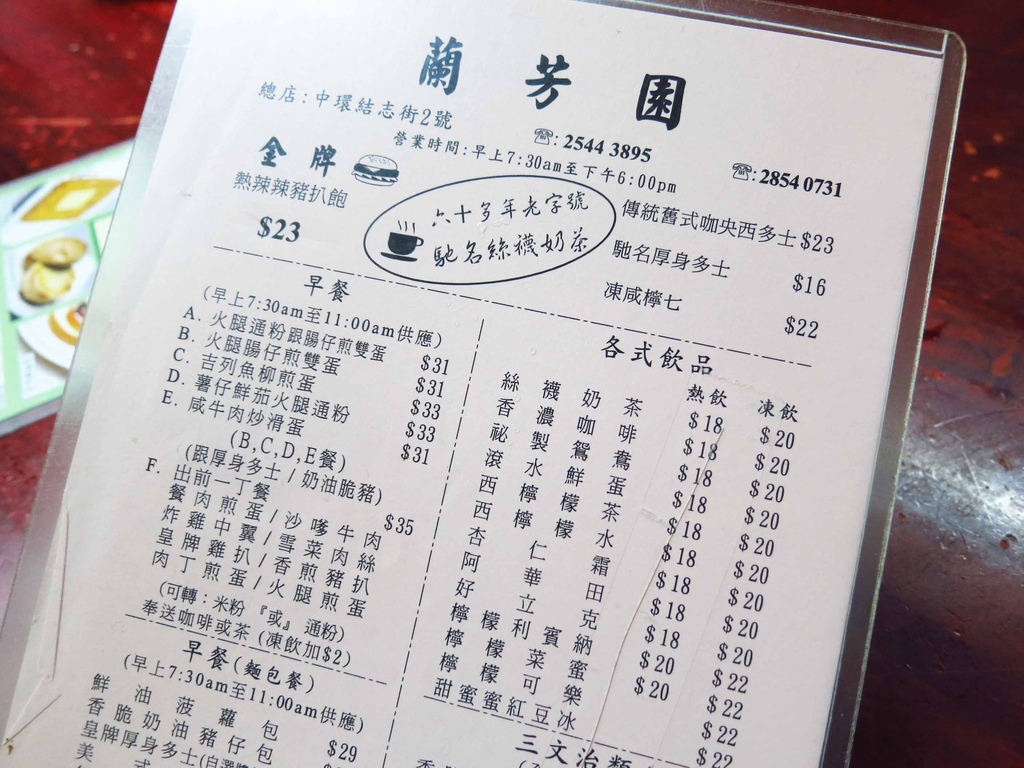 蘭芳園
總店:中環結志街2號
☎: 2544 3895
☎: 2854 0731
營業時間:早上7:30am至下午6:00pm
金牌
熱辣辣豬扒飽
$23
六十多年老字號
馳名絲襪奶茶
傳統舊式咖央西多士 $23
馳名厚身多士 $16
凍咸檸七 $22
早餐
(早上7:30am至11:00am供應)
A. 火腿通粉跟腸仔煎雙蛋 $31
B. 火腿腸仔煎雙蛋 $31
C. 吉列魚柳煎蛋 $33
D. 薯仔鮮茄火腿通粉 $33
E. 咸牛肉炒滑蛋 $31
(B,C,D,E餐)
(跟厚身多士/奶油脆豬)
F. 出前一丁餐 $35
餐肉煎蛋/沙嗲牛肉
炸雞中翼/雪菜肉絲
皇牌雞扒/香煎豬扒
肉丁煎蛋/火腿煎蛋
(可轉:米粉『或』通粉)
奉送咖啡或茶(凍飲加$2)
早餐(麵包餐)
(早上7:30am至11:00am供應)
鮮油菠蘿包 $29
香脆奶油豬仔包
皇牌厚身多士(自選
美式
各式飲品
熱飲 凍飲
絲襪奶茶 $18 $20
香濃咖啡 $18 $20
祕製鴛鴦 $18 $20
滾水鮮蛋 $18 $20
西檸檬茶 $18 $20
西檸檬水 $18 $20
杏仁霜 $18 $20
阿華田 $18 $20
好立克 $18 $20
檸檬利賓納 $20 $22
檸檬菜蜜 $20 $22
檸檬可樂 $22
甜蜜蜜紅豆冰 $22
三文治類